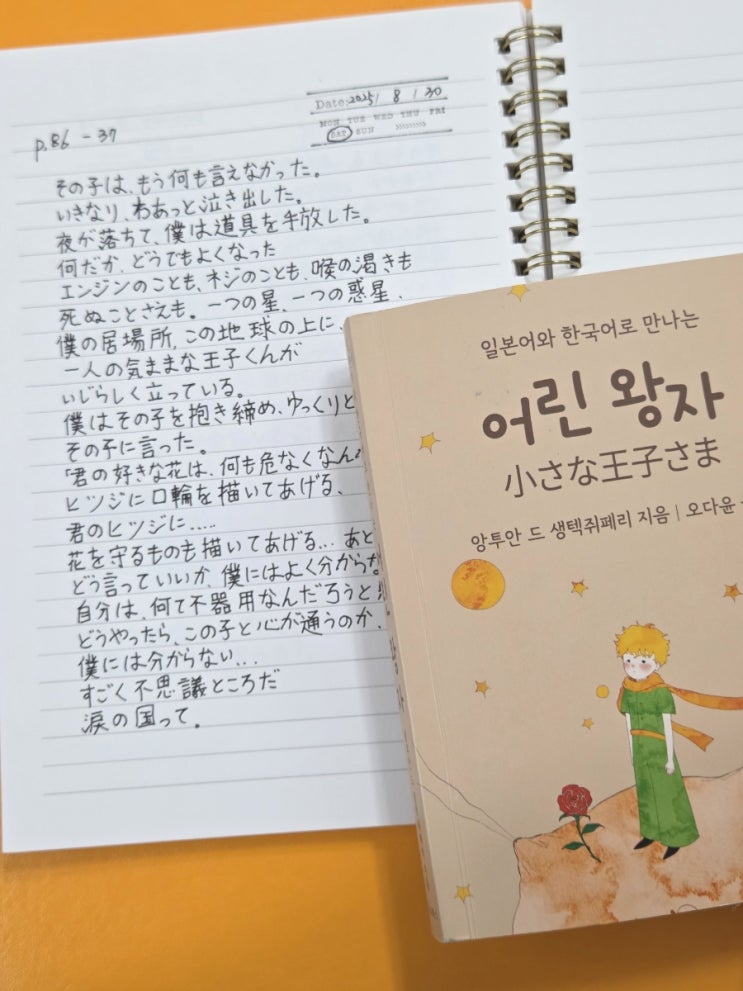 p.86 - 37
Date: 2025 / 8 / 30
MON TUE WED THU FRI
SAT SUN
その子は、もう何も言えなかった。
いきなり、わあっと泣き出した。
夜が落ちて、僕は道具を手放した。
何だか、どうでもよくなった
エンジンのことも、ネジのことも、喉の渇きも
死ぬことさえも。一つの星、一つの惑星、
僕の居場所、この地球の上に、
一人の気ままな王子くんが
いじらしく立っている。
僕はその子を抱き締め、ゆっくりと
その子に言った。
「君の好きな花は、何も危なくなん
ヒツジに口輪を描いてあげる、
君のヒツジに.....
花を守るものも描いてあげる... あと
どう言っていいか、僕にはよく分からな
自分は、何て不器用なんだろうと
どうやったら、この子と心が通うのか、
僕には分からない...
すごく不思議ところだ
涙の国って。
일본어와 한국어로 만나는
어린 왕자
小さな王子さま
앙투안 드 생텍쥐페리 지음 | 오다윤